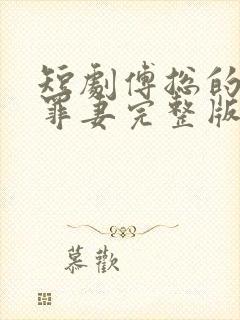 短劇傅總的
罪妻完整版
慕歡